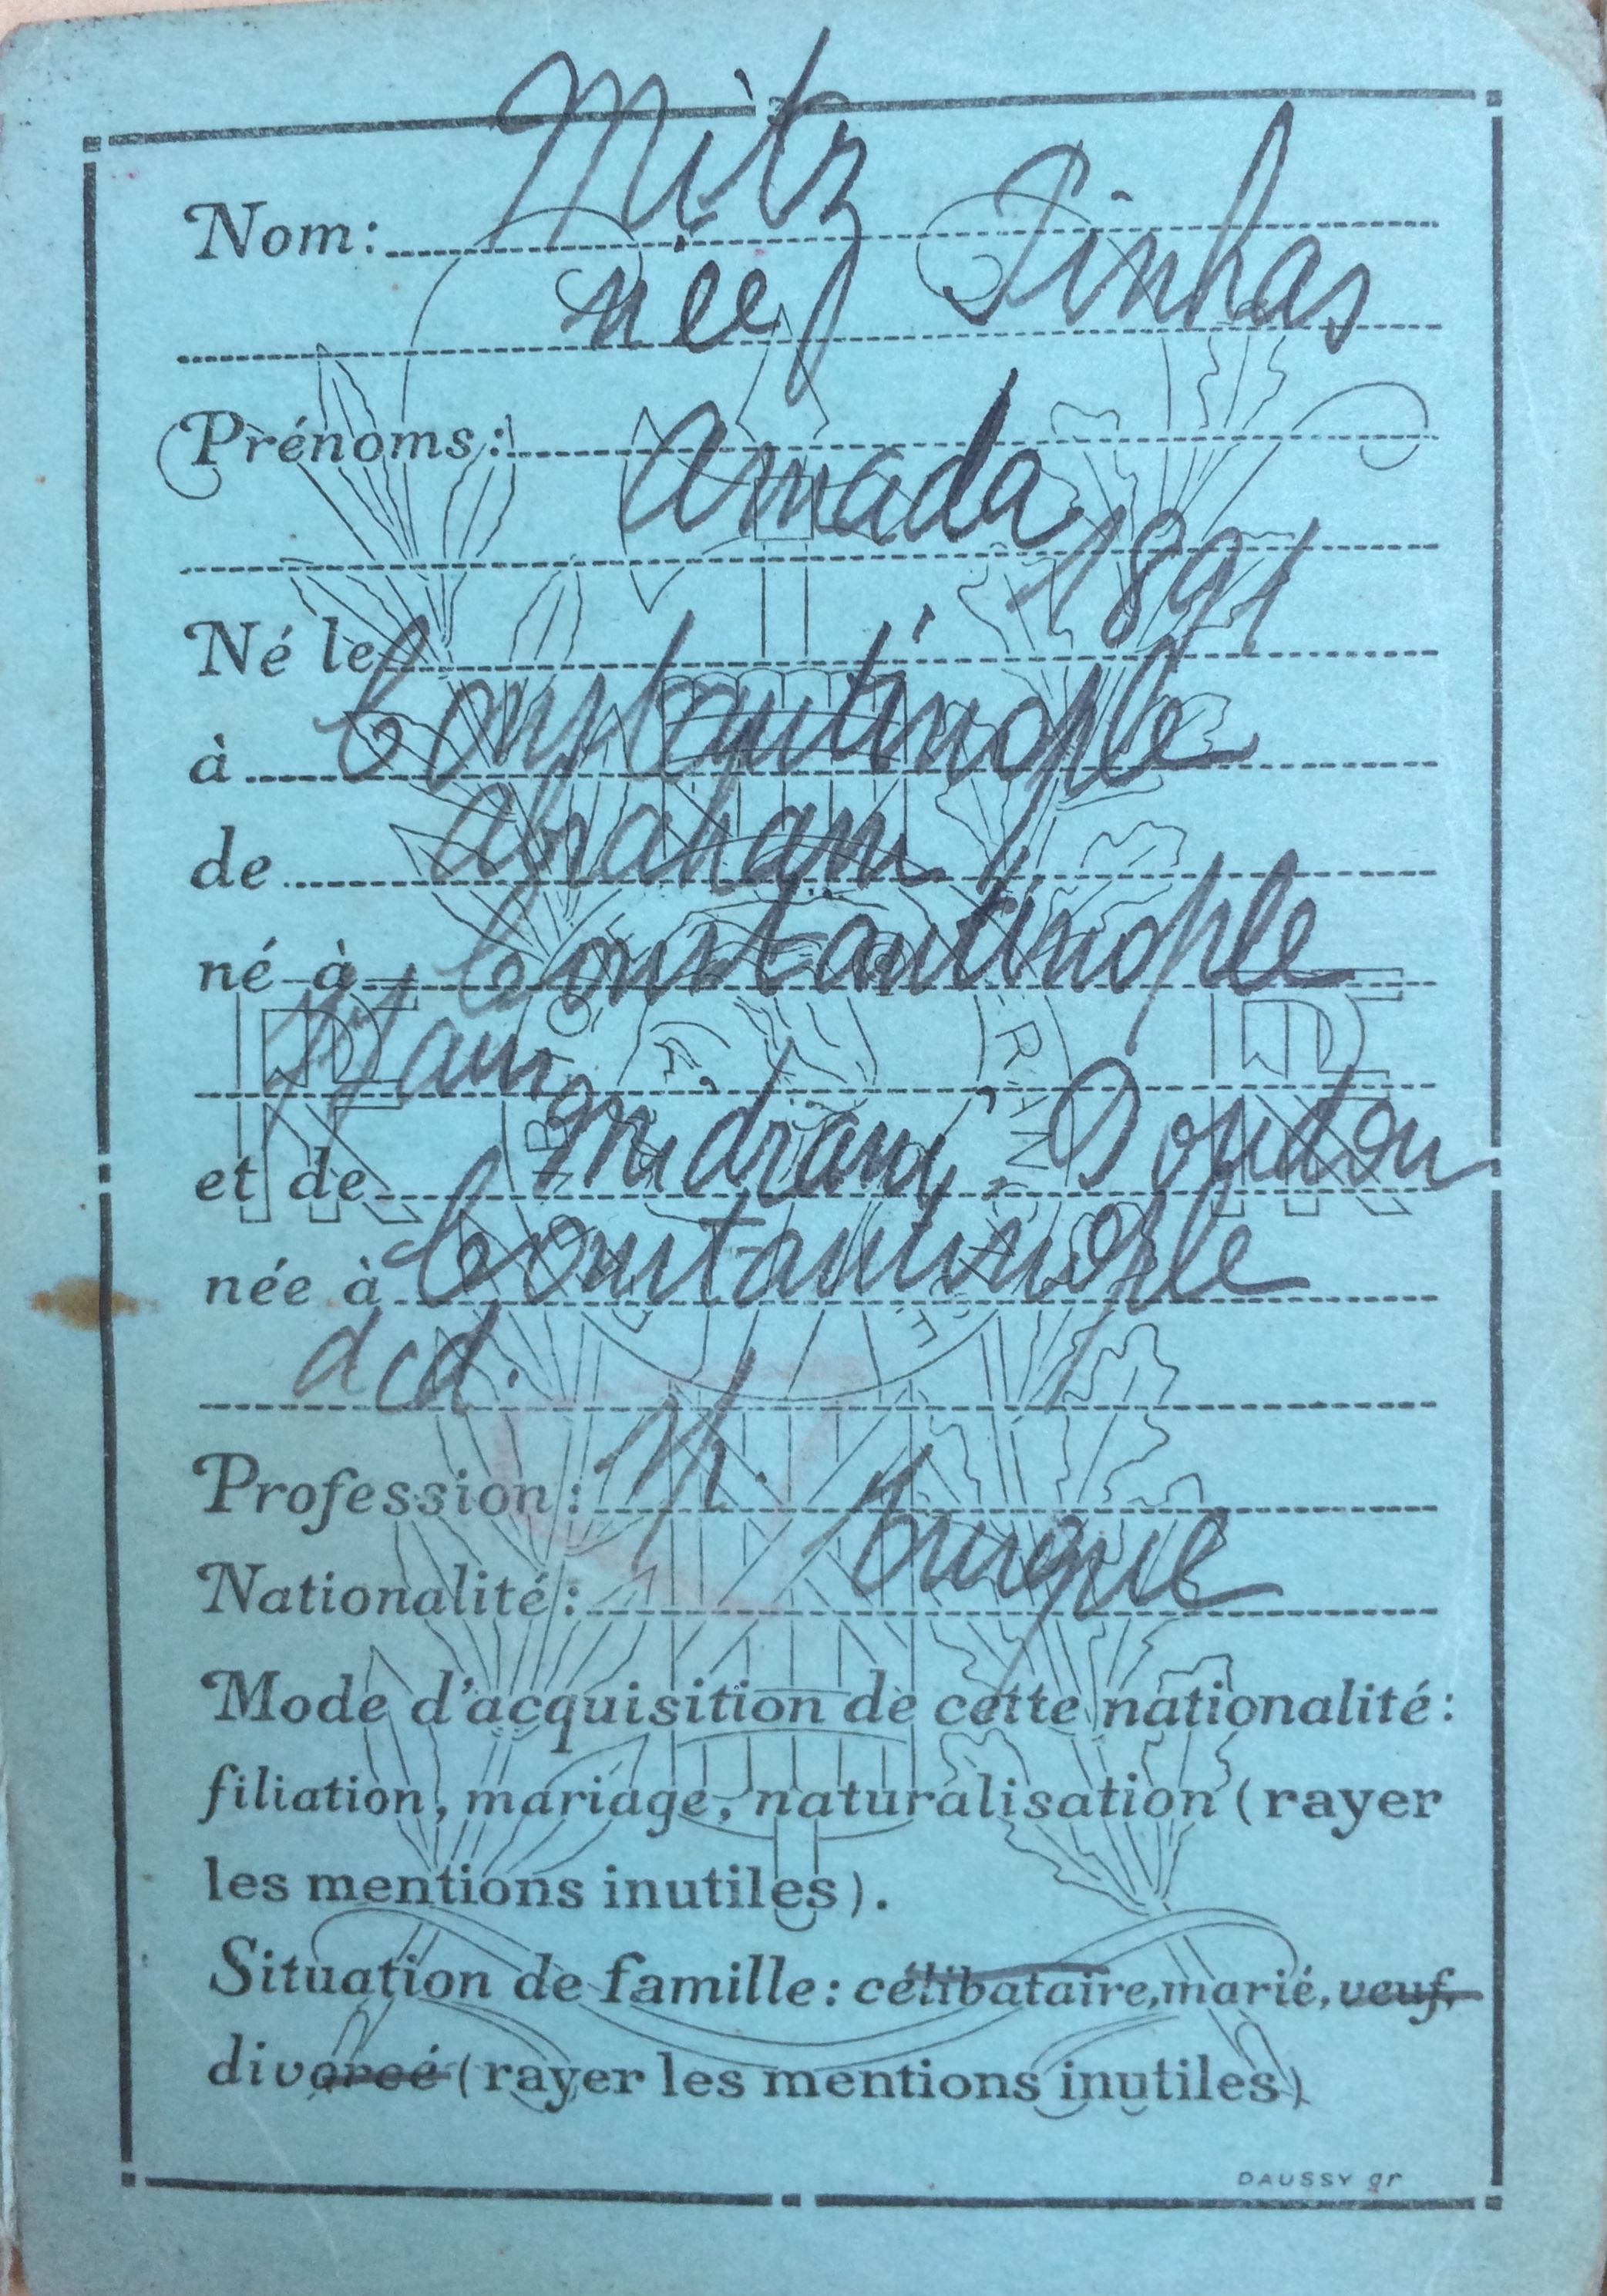 Nom: Mitz
née Pinhas
Prénoms: Amada
Né le 1891
à Constantinople
de Abraham
né à Constantinople
et de Midrani, Doudou
née à Constantinople
dcd.
Profession:
Nationalité: Turque
Mode d'acquisition de cette nationalité:
filiation, mariage, naturalisation (rayer
les mentions inutiles).
Situation de famille: célibataire, marié, veuf,
divorcé (rayer les mentions inutiles)
DAUSSY gr